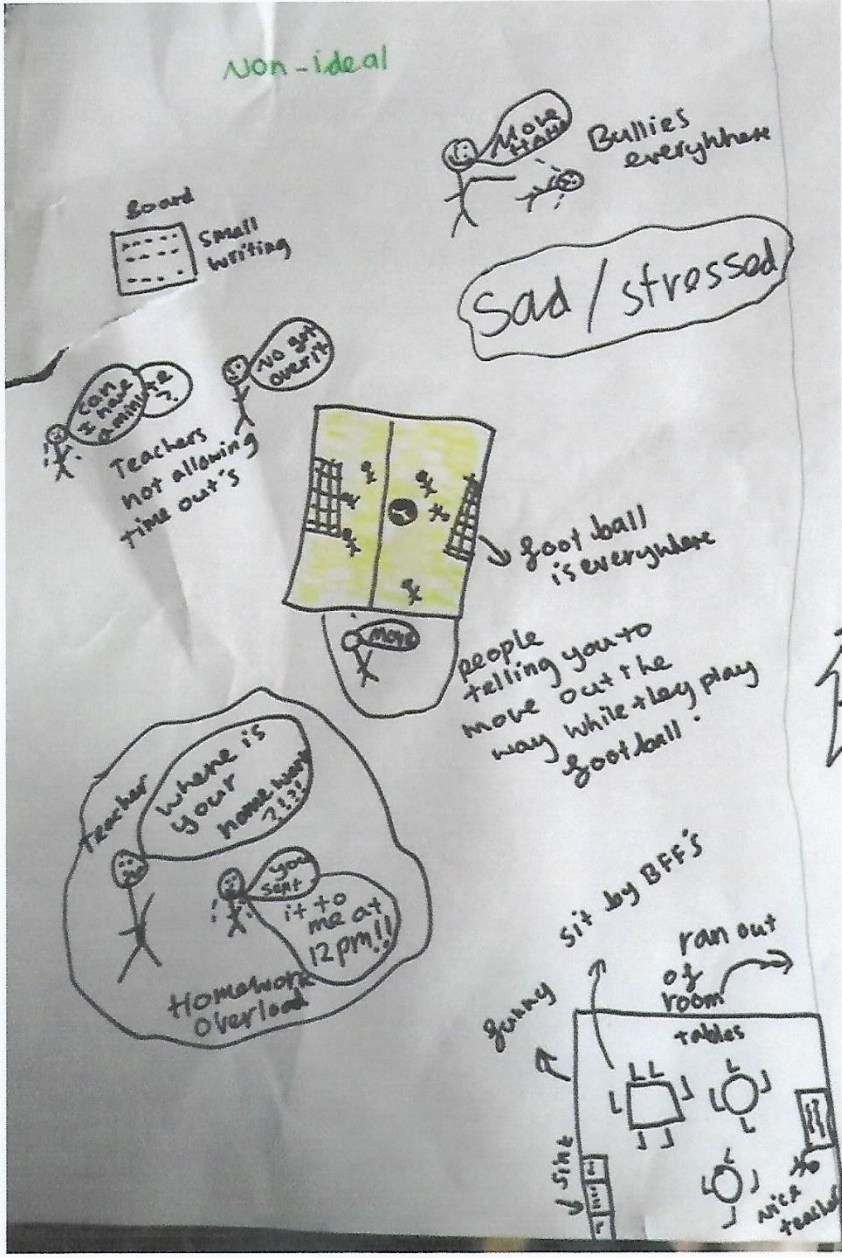 Non-ideal
Move
HAHA
Bullies
everywhere
Board
small
writing
Sad/stressed
can
I have
a minute
?
No get
over it
Teachers
not allowing
time out's
football
is everywhere
move
people
telling you to
move out the
way while they play
football.
teacher
where is
your
homework
?!?!
you
sent
it to
me at
12pm!!
Homework
overload
sit by BFF's
funny
ran out
of
room
tables
sink
Nice
teacher